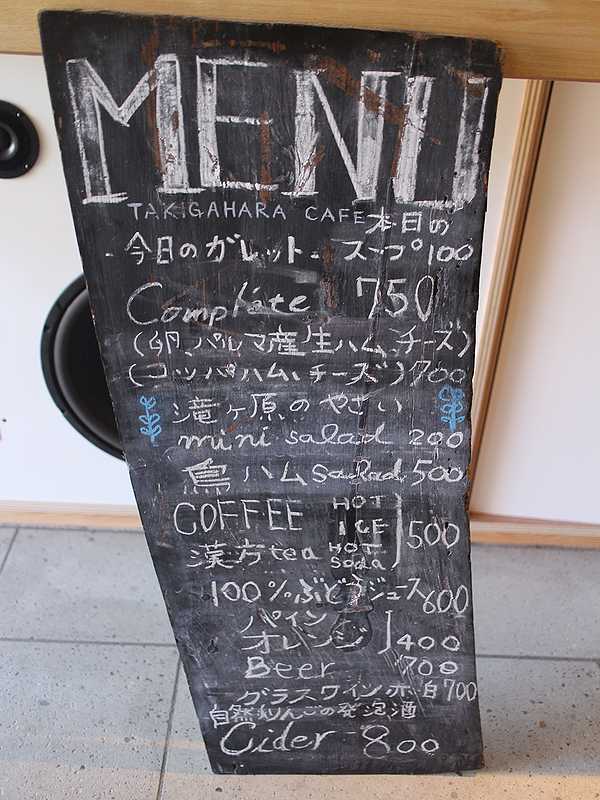 MENU
TAKIGAHARA CAFE
本日の
-今日のガレット- スープ100
Complète 750
(卵、パルマ産生ハム、チーズ)
(コッパハム、チーズ)700
滝ヶ原のやさい
mini salad 200
鳥ハムsalad 500
COFFEE HOT ICE 500
漢方tea HOT Soda
100%ぶどうジュース600
パイン
オレンジ 400
Beer 700
グラスワイン 赤 白700
自然りんごの発泡酒
Cider 800